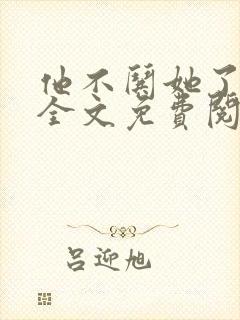 他不关她了
全文免费阅
吕迎旭